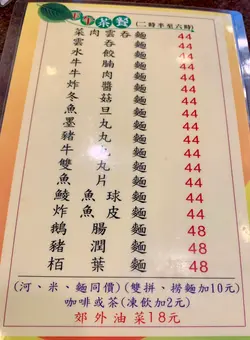 午茶餐 (二時半至六時)
菜肉雲吞麵 44
雲吞麵 44
水餃麵 44
牛腩麵 44
牛肉麵 44
炸醬麵 44
冬菇麵 44
魚旦麵 44
墨丸麵 44
豬丸麵 44
牛丸麵 44
雙丸麵 44
魚片麵 44
鯪魚球麵 44
炸魚皮麵 44
鵝腸麵 48
豬潤麵 48
栢葉麵 48
(河、米、麵同價)(雙拼、撈麵加10元)
咖啡或茶(凍飲加2元)
郊外油菜18元